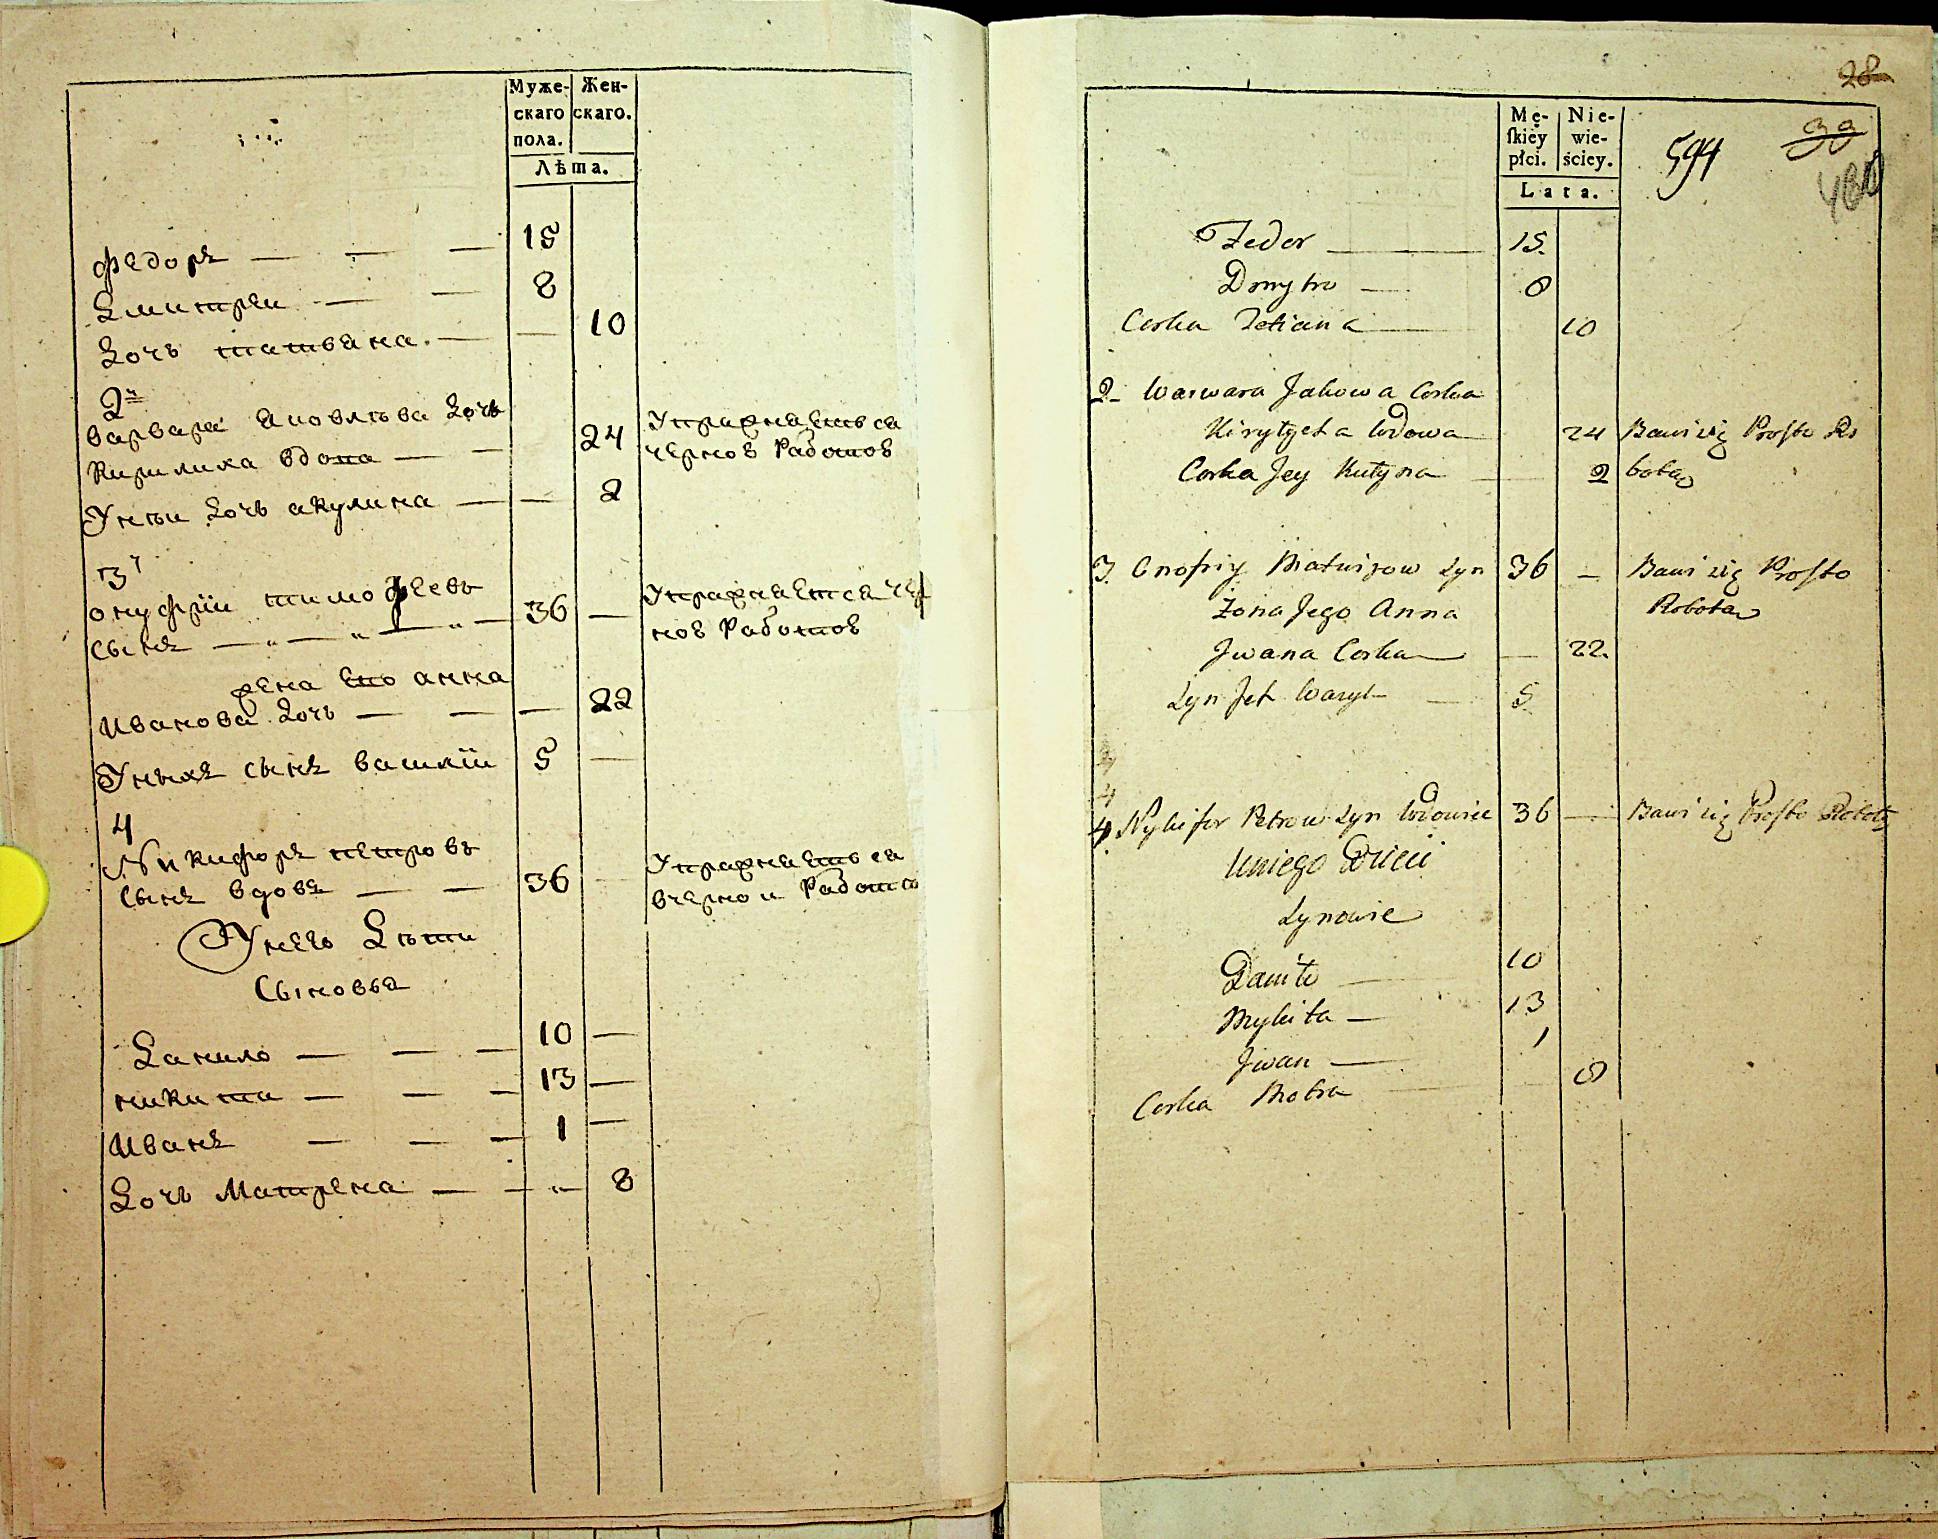 Муже-
скаго
пола.
Жен-
скаго.
Лѣта.
Федоръ — — — 15
Дмитреи — — 8
Дочь татьяна. — — 10
2я
варвара яковлѣва дочь
кирилиха вдова — — 24 Упражняеть ся
черной Работой
У нѣи дочь акулина — — 2
3й
онуфрїи тимофеевъ
сынъ — „ — „ — „ — 36 — Упражняется чер
ной Работой
жена его анна
Иванова дочь — — — 22
У ныхъ сынъ василїи 5 —
4
Никифоръ петровъ
сынъ вдовъ — — 36 — Упражняеть ся
вчерной Работѣ
У него Дѣти
Сыновья
Данило — — — 10 —
никита — — — 13 —
Иванъ — — — 1 —
Дочь Матрена — — „ — 8
28
Mę-
skiey
płci.
Nie-
wie-
ściey.
Lata.
594
39
480
Fedor — 15.
Dmytro — 8
Corka Tetiana — 10
2 Warwara Jakowa Corka
Kirylycha Wdowa — 24 Bawi się Prosto Ro
Corka Jey Kulyna — 2 botą
3. Onofriy Matwijow Syn 36 — Bawi się Prosto
Żona Jego Anna Robotą
Jwana Corka — — 22.
Syn Jch Wasyl — 5
4
4
4 Nykifor Petrow Syn Wdowiec 36 — Bawi się Prosto Robotą
U niego Dzieci
Synowie
Daniło — 10
Mykita — 13
Jwan — 1
Corka Motra — — 8